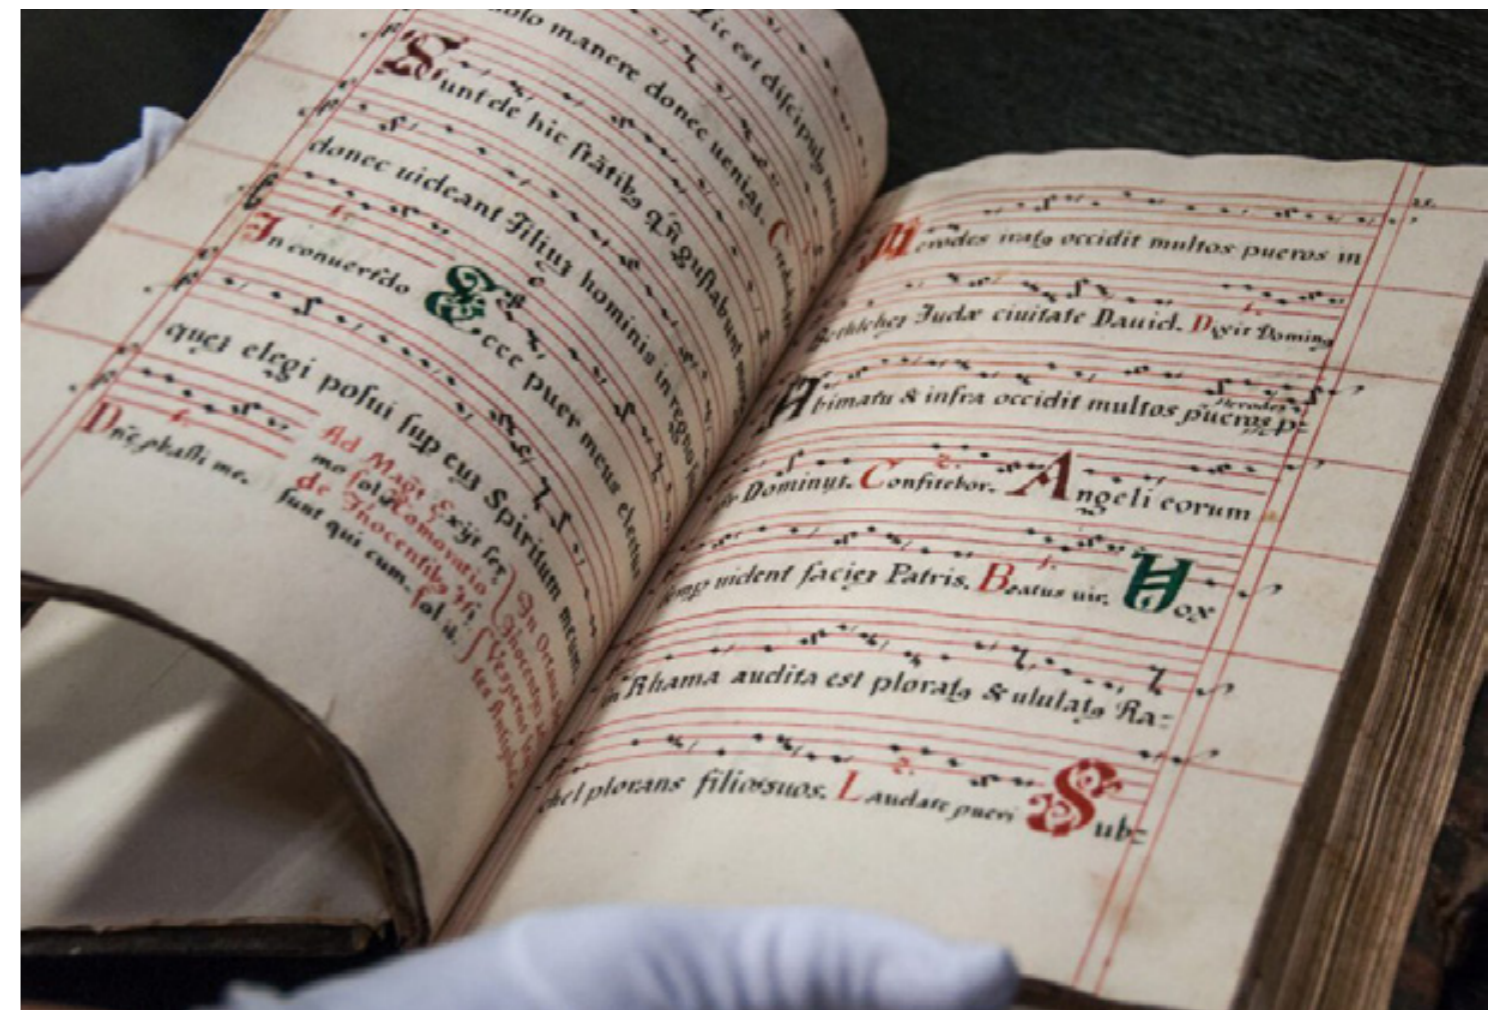 ic est discipulꝰ
olo manere donec ueniaʒ. C
Sunt de hic stātibꝰ q̄ñ gustabunt
donec uideant Filiuʒ hominis in regno
In conuertēdo Ecce puer meus electus
queʒ elegi posui sup euʒ Spiritum meum
Dñe pbasti me. Ad Mag̃t Exijt ser
mo sol Comoratio
de Inocentibꝰ Hi
sunt qui cum. sol u.
Herodes iratꝰ occidit multos pueros in
Bethleheʒ Judæ ciuitate Dauid. Dixit Dominꝰ
A bimatu & infra occidit multos pueros p:
Herodes
Dominuʒ. Confitebor. Angeli eorum
uident facieʒ Patris. Beatus uir. Uox
in Rhama audita est ploratꝰ & ululatꝰ Ra:
chel plorans filios suos. Laudate pueri Sub: